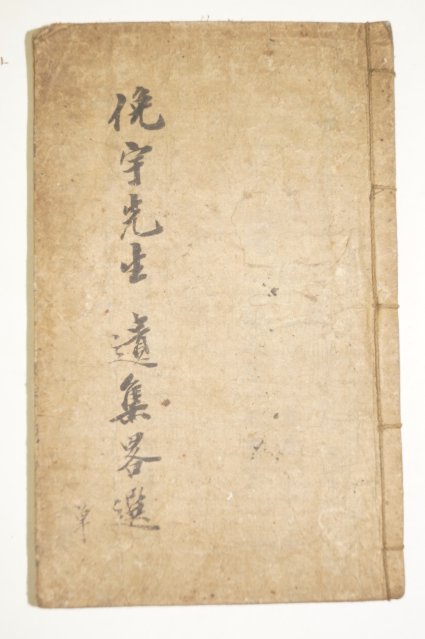 俛宇先生 遺集畧選
單